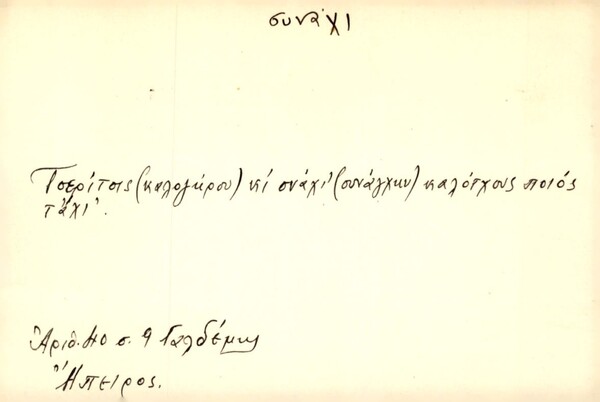 συνάχι
Τσερίτσις (καλογήρου) κί σνάχι' (συνάγχην) καλότχους ποιός
τάχι'.
Ἀριθ. 40 σ. 9 Γαλδέμης
Ἤπειρος.